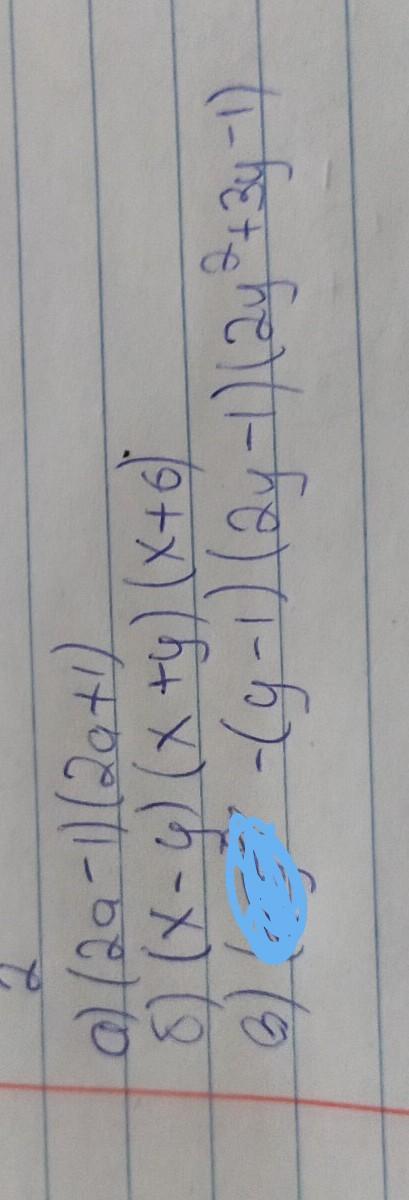 2
а) (2a-1)(2a+1)
б) (x-y)(x+y)(x+6)
в) -(y-1)(2y-1)(2y²+3y-1)